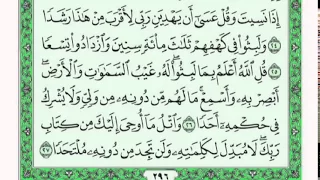 إِذَا نَسِيتَ وَقُلْ عَسَىٰ أَن يَهْدِيَنِ رَبِّي لِأَقْرَبَ مِنْ هَٰذَا رَشَدًا
٢٤ وَلَبِثُوا۟ فِي كَهْفِهِمْ ثَلَٰثَ مِا۟ئَةٍ سِنِينَ وَٱزْدَادُوا۟ تِسْعًا
٢٥ قُلِ ٱللَّهُ أَعْلَمُ بِمَا لَبِثُوا۟ لَهُۥ غَيْبُ ٱلسَّمَٰوَٰتِ وَٱلْأَرْضِ
أَبْصِرْ بِهِۦ وَأَسْمِعْ مَا لَهُم مِّن دُونِهِۦ مِن وَلِيٍّ وَلَا يُشْرِكُ
فِي حُكْمِهِۦٓ أَحَدًا ٢٦ وَٱتْلُ مَآ أُوحِيَ إِلَيْكَ مِن كِتَابِ
رَبِّكَ لَا مُبَدِّلَ لِكَلِمَٰتِهِۦ وَلَن تَجِدَ مِن دُونِهِۦ مُلْتَحَدًا ٢٧
٢٩٦